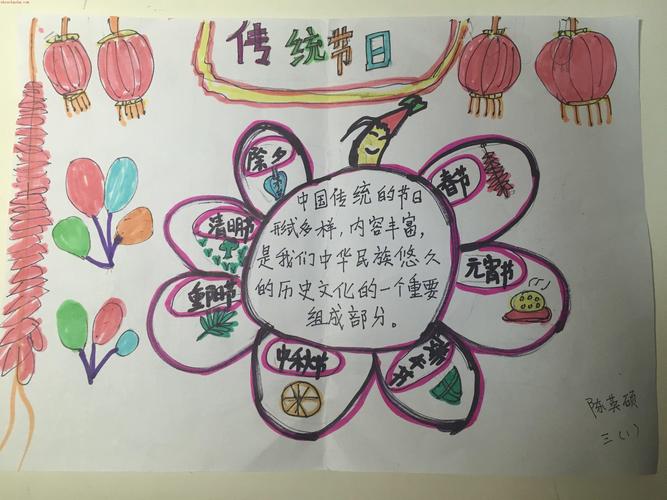 传统节日
除夕
春节
清明节
元宵节
重阳节
中秋节
中国传统的节日
形试多样，内容丰富，
是我们中华民族悠久
的历史文化的一个重要
组成部分。
陈英硕
三(1)